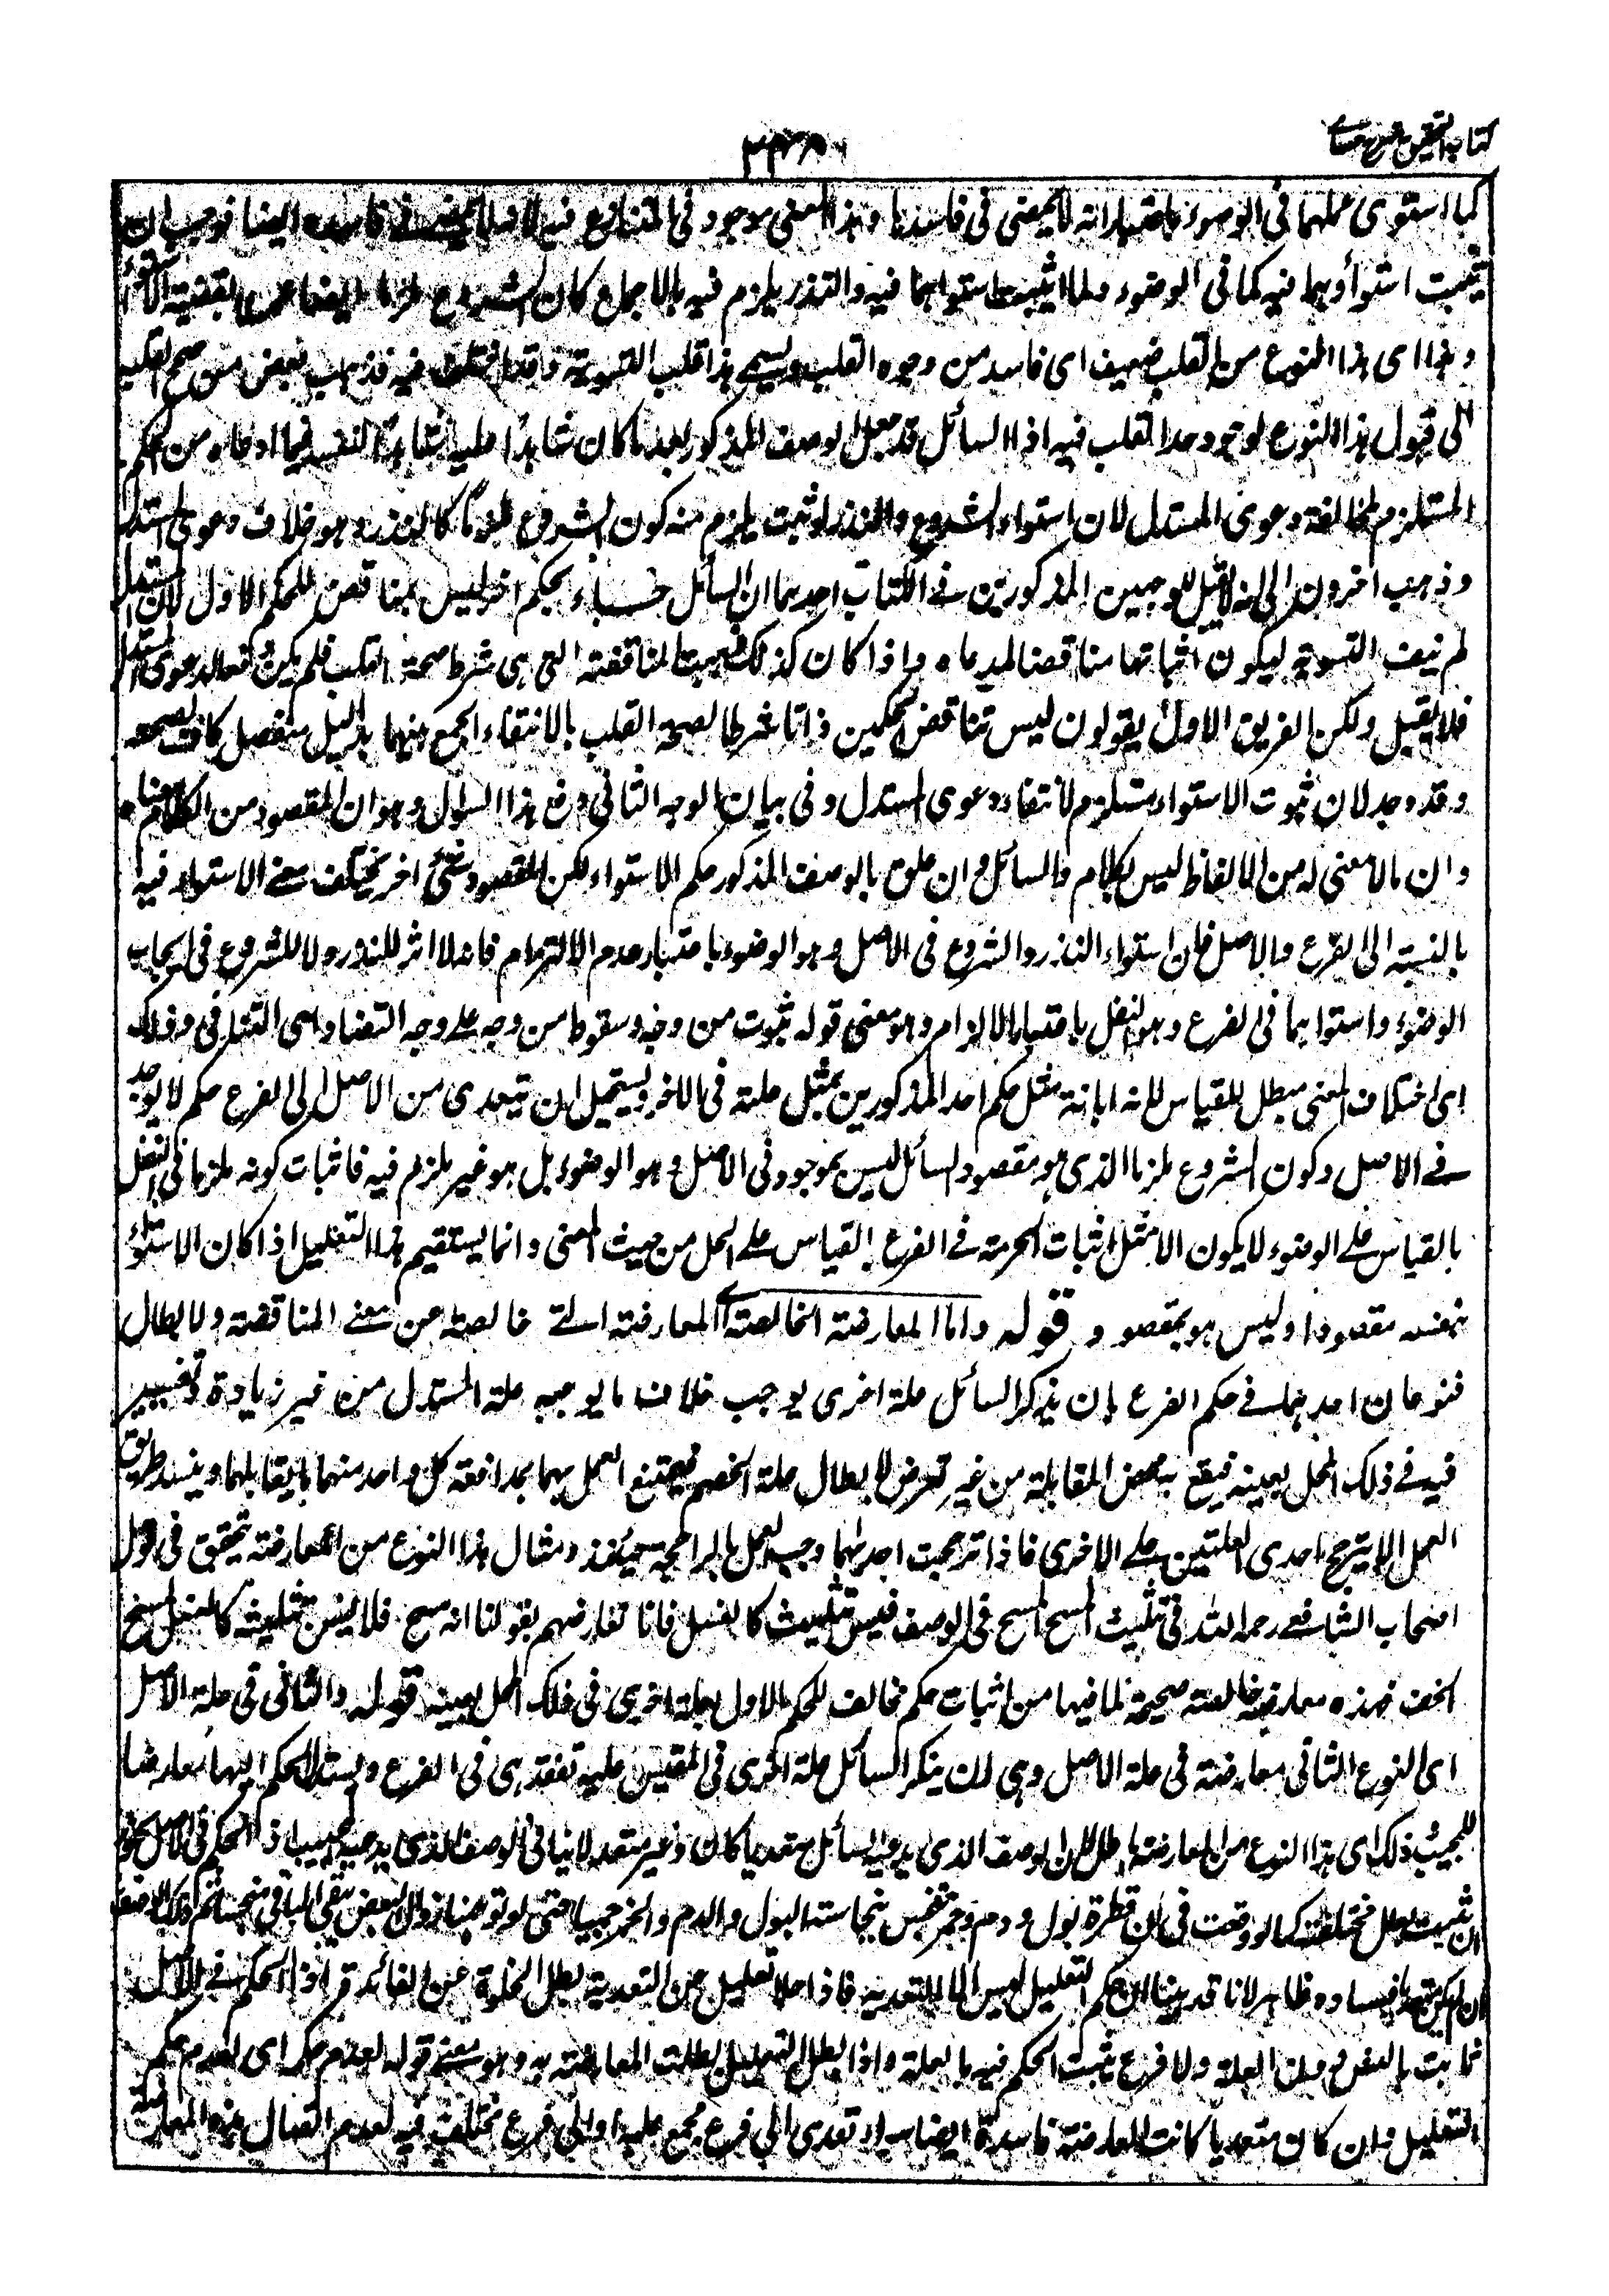 كتاب التحقيق شرح حسامي
٢٣٨
كما استوى عملهما في الوضوء باعتبار انه لا يمضى في فاسدها وهذا المعنى موجود في المتنازع فيه لانه لا يمضى في فاسده ايضا فوجب ان
يثبت استواؤهما فيه كما في الوضوء ولما اثبت استواهما فيه والنذر يلزم فيه بالاجماع كان الشروع ملزما ايضا بقضية الاستواء
وهذا اى هذا النوع من القلب ضعيف اى فاسد من وجوه القلب ويسمى هذا قلب التسوية وقد اختلف فيه فذهب بعض من صحح القلب
الى قبول هذا النوع لوجود حد القلب فيه اذا السائل قد جعل الوصف المذكور بعد ما كان شاهدا عليه شاهدا لنفسه فيما ادعاه من الحكم
المستلزم لمخالفة دعوى المستدل لان استواء الشروع والنذر لو ثبت يلزم منه كون الشروع ملزما كالنذر وهو خلاف دعوى المستدل
وذهب اخرون الى انه لا يقبل للوجهين المذكورين في الكتاب احدهما ان السائل جاء بحكم اخر ليس بمناقض للحكم الاول لان المستدل
لم ينف التسوية ليكون اثباتها مناقضا لمدعاه واذا كان كذلك ذهبت المناقضة التي هي شرط صحة القلب فلم يكن دفعا لدعوى المستدل
فلا يقبل ولكن الفريق الاول يقولون ليس تناقض الحكمين ذاتا شرطا لصحة القلب بل انتفاء الجمع بينهما بدليل منفصل كاف لصحته
وقد وجد لان ثبوت الاستواء مستلزم لانتفاء دعوى المستدل وفي بيان الوجه الثاني دفع هذا السؤال وهو ان المقصود من الكلام معناه
وان ما لا معنى له من الالفاظ ليس بكلام والسائل وان علق بالوصف المذكور حكم الاستواء لكن المقصود شئ اخر يختلف معنى الاستواء فيه
بالنسبة الى الفرع والاصل فان استواء النذر والشروع في الاصل وهو الوضوء باعتبار عدم الالتزام فانه لا اثر للنذر ولا للشروع في ايجاب
الوضوء واستواهما في الفرع وهو النفل باعتبار الالزام وهو معنى قوله ثبوت من وجه وسقوط من وجه على وجه التضاد اى التنافى وذلك
اى اختلاف المعنى مبطل للقياس لانه ابانة مثل حكم احد المذكورين بمثل علته في الاخر ويستحيل ان يتعدى من الاصل الى الفرع حكم لا يوجد
في الاصل وكون الشروع ملزما الذي هو مقصود السائل ليس بموجود في الاصل وهو الوضوء بل هو غير ملزم فيه فاثبات كونه ملزما في النفل
بالقياس على الوضوء لا يكون الا مثل اثبات الحرمة في الفرع بالقياس على الحل من حيث المعنى وانما يستقيم هذا التعليل اذا كان الاستواء
بنفسه مقصودا وليس هو بمقصود قوله واما المعارضة الخالصة اى المعارضة التي خالصة عن معنى المناقضة والابطال
فنوعان احدهما في حكم الفرع بان يذكر السائل علة اخرى يوجب خلاف ما يوجبه علة المستدل من غير زيادة وتغيير
فيه في ذلك المحل بعينه فيقع به محض المقابلة من غير تعرض لابطال علة الخصم فيمتنع العمل بهما بمدافعة كل واحد منهما ما يقابلهما وينسد طريق
العمل الا بترجيح احدى العلتين على الاخرى فاذا ترجحت احديهما وجب العمل بالراجحة حينئذ ومثال هذا النوع من المعارضة يتحقق في قول
اصحاب الشافعي رحمه الله في تثليث المسح المسح في الوصف فيسن تثليثه كالغسل فانا نعارضهم بقولنا انه مسح فلا يسن تثليثه كالمسح
الخف فهذه معارضة خالصة صحيحة لما فيها من اثبات حكم مخالف للحكم الاول بعلة اخرى في ذلك المحل بعينه قوله والثاني في علة الاصل
اى النوع الثاني معارضة في علة الاصل وهي ان يذكر السائل علة اخرى في المقيس عليه تفقد هي في الفرع ويستدل الحكم اليها معارضا
للمجيب وذلك اى هذا النوع من المعارضة باطل لان الوصف الذي يدعيه السائل متعديا كان او غير متعد لا ينافى الوصف الذي يدعيه المجيب اذ الحكم في الاصل يجوز
ان يثبت بعلل مختلفة كما لو وقعت في اناء قطرة بول ودم وخمر تنجس بنجاسة البول والدم والخمر جميعا حتى لو توهمنا زوال البعض يبقى الباقي منجسا ثم ذلك الوصف
ان لم يكن متعديا ففساده ظاهر لانا قد بينا ان حكم التعليل ليس الا للتعدية فاذا خلا تعليل عن التعدية بطل الخلوه عن الفائدة اذ الحكم في الاصل
ثابت بالنص دون العلة ولا فرع يثبت الحكم فيه بالعلة واذا بطل التعليل بطلت المعارضة به وهو معنى قوله لعدم حكمه اى لعدم حكم
التعليل وان كان متعديا كانت المعارضة فاسدة ايضا سواء تعدى الى فرع مجمع عليه او الى فرع مختلف فيه لعدم اتصال هذه المعارضة